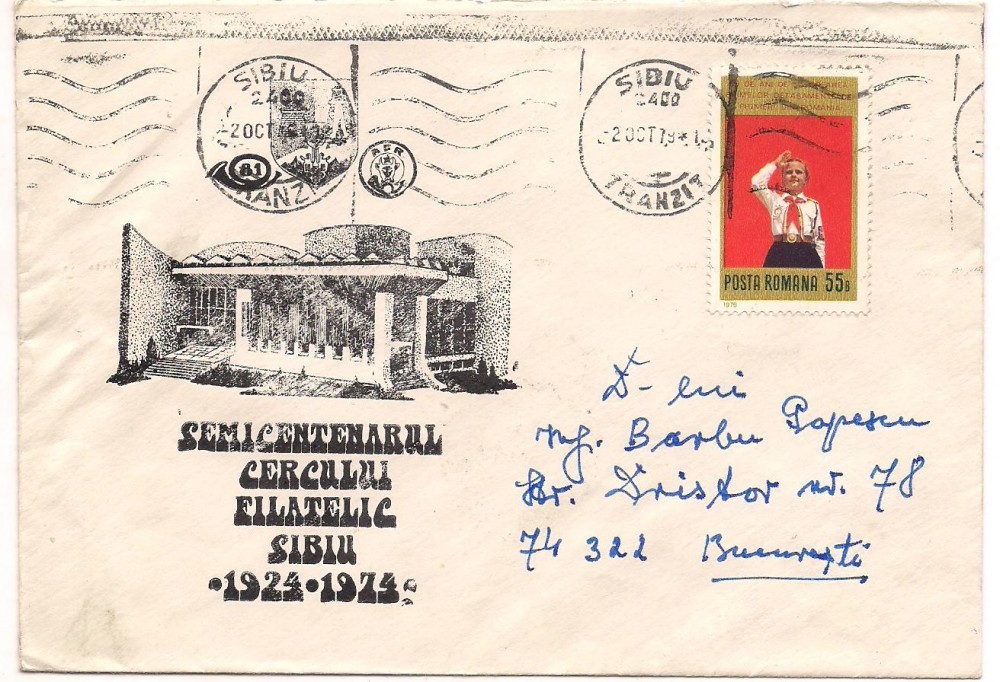 SIBIU
2400
-2OCT79
TRANZIT
81
SIBIU
2400
-2OCT79*
TRANZIT
DE ANI DE
ROMÂNIA
POSTA ROMANA 55B
1976
SEMICENTENARUL
CERCULUI
FILATELIC
SIBIU
•1924•1974
D-lui
ing. Barbu Popescu
str. Dristor nr. 78
74 322 București